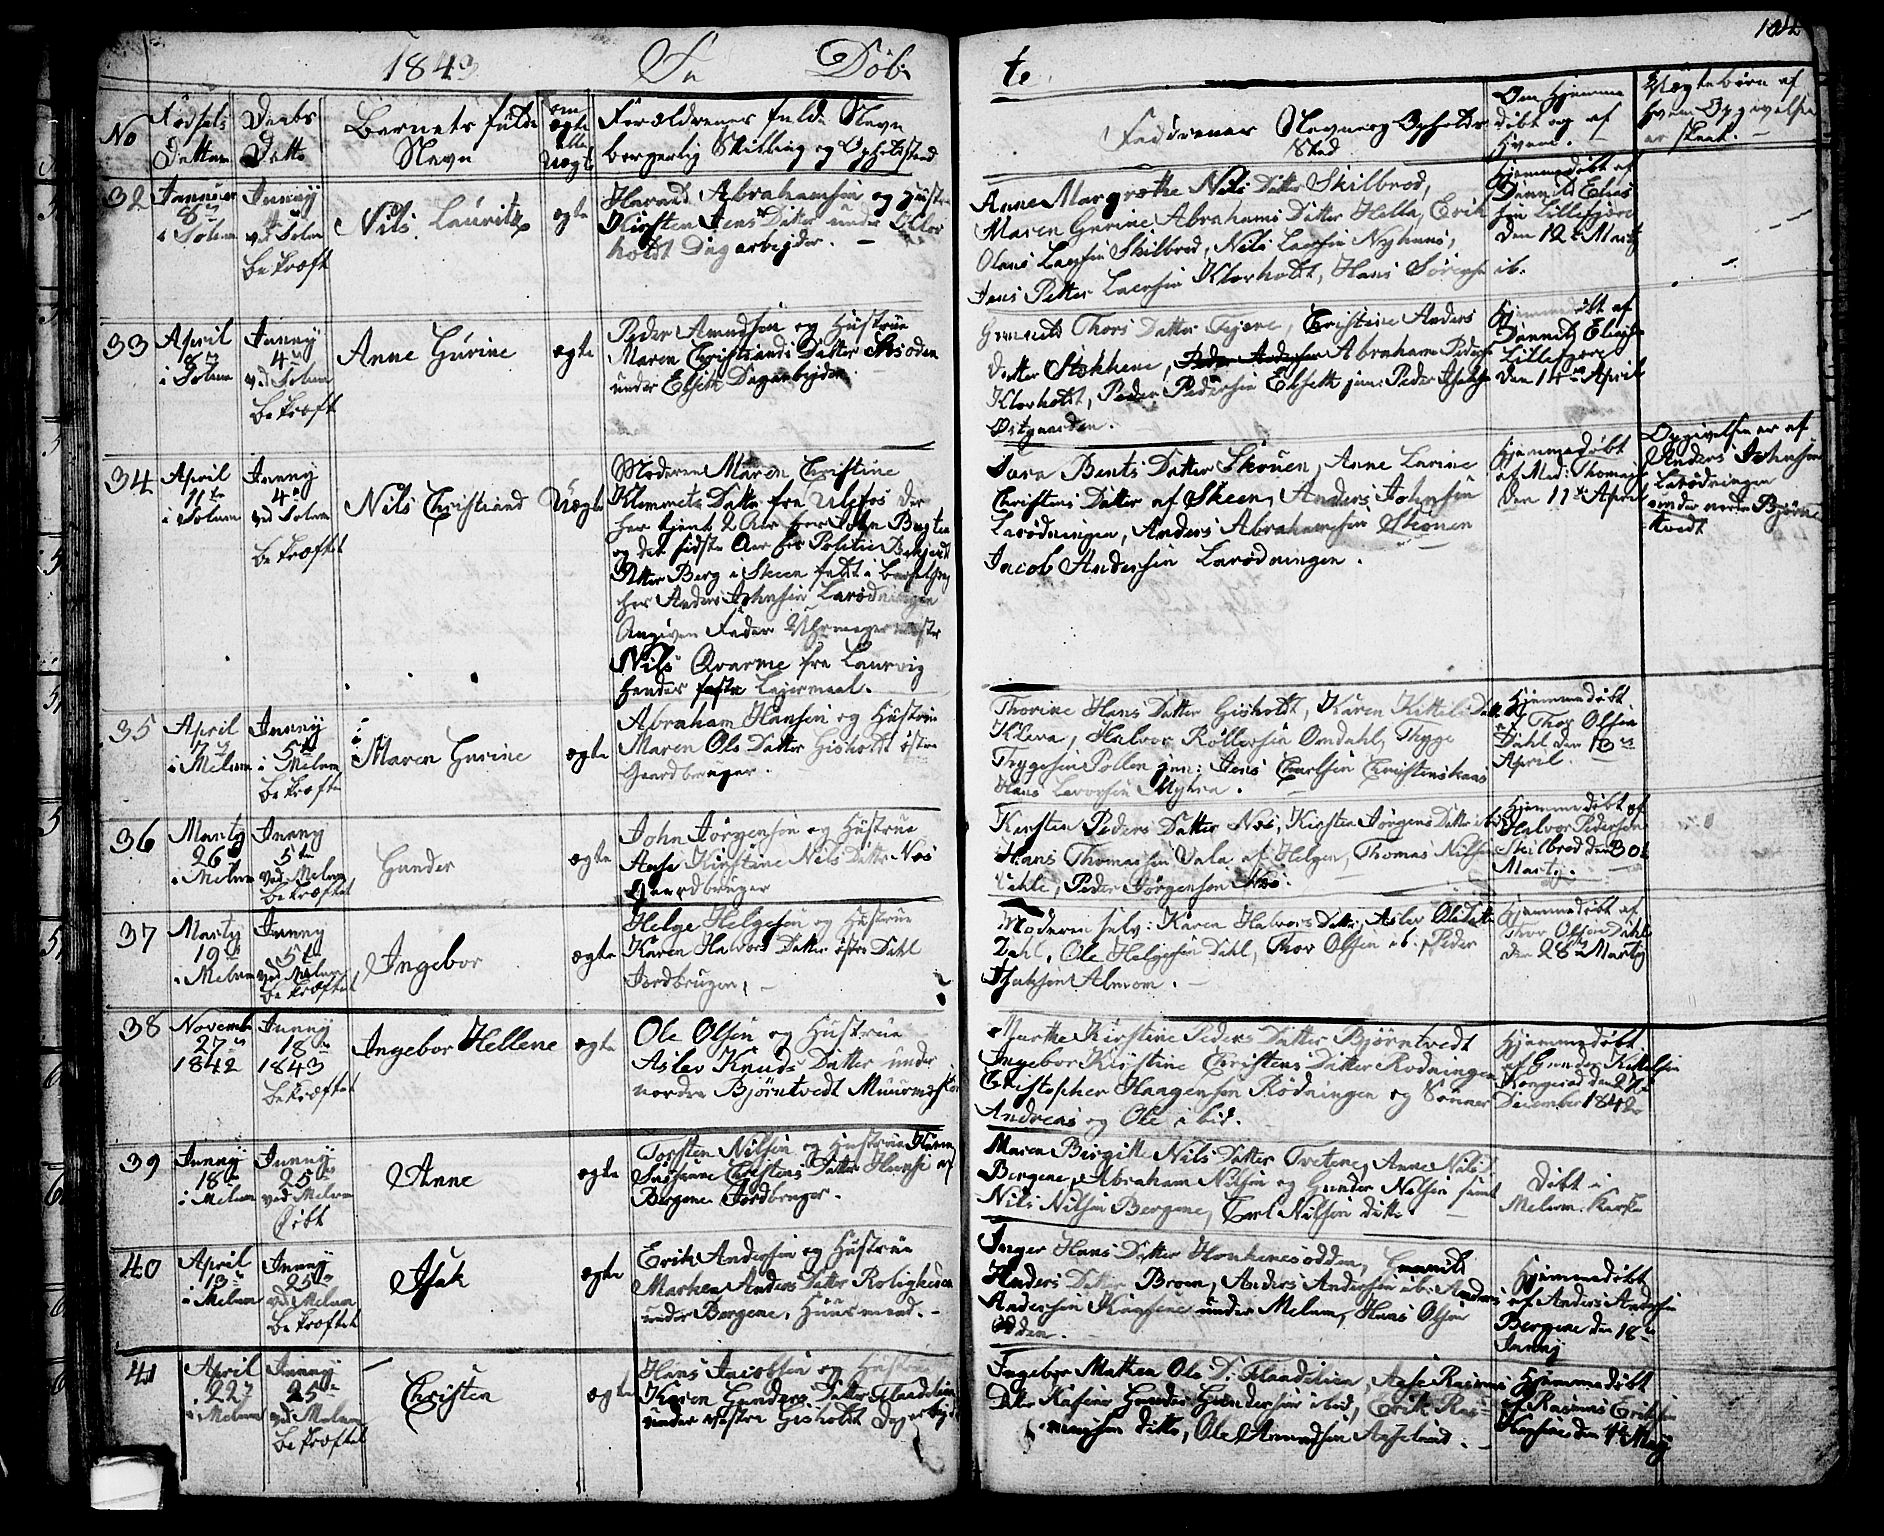 1843 Døbte
No
Fødsels Dattum
Daabs Datto
Barnets fulde Navn
om ægte eller Uægte
Forældrenes fulde Navn borgerlig Stilling og Opholdsted
Faddrenes Navne og Opholds Sted
Om Hjemme døbt og af Hvem.
Uægtebørn af hvem Opgivelsen er skeet.
32
Januar
i Solum
Junny
ved Solum
bekræft
Nils Lauritz
ægte
Abrahamsen og Hustru
Kirsten Jens Datter under Klov
holdt Dagarbejder.
Anne Margrethe Nils Datter Skilbred,
Maren Gurine Abrahams Datter Hella, Erik
Olaus Larsen Skilbred, Nils Larsen Nyhuus,
Jens Petter Larsen Klovholdt, Hans Sørensen ib.
Hjemmedøbt af
Lillefjære
den 12te Martz
33
April
8de
i Solum
Junny
4de
ved Solum
bekræft
Anne Gurine
ægte
Peder Amundsen og Hustrue
Maren Christians Datter
under Elseth Dagarbejder.
Thors Datter Fjære, Christine Anders
Datter Stokkene, Abraham Peders
Klovholdt, Peder Pedersen Elseth jun: Peder Isaksen
Østgaarden.
Hjemmedøbt af
Lillefjære
den 14de April
34
April
11te
i Solum
Junny
4de
ved Solum
bekræftet
Nils Christians
Uægte
Moderen Maren Christine
Klemmets Datter fra Ulefos der
har tjent 2 Aar hos John
og det sidste Aar hos Politie
Petter Berg i Skeen født i Barselseng
hos Anders Johnsen Larødningen
Angiven Fader Uhrmager
Nils Qvarme fra Laurvig
hendes første Lejermaal.
Sara Bents Datter Skouen, Anne Larine
Christens Datter af Skeen, Anders Johnsen
Larødningen, Anders Abrahamsen Skouen
Jacob Andersen Larødningen.
Hjemmedøbt
af Mad: Thomas
den 11te April
Opgivelsen er af
Anders Johnsen
Larødningen
under nordre Bjørn
tvedt
35
April
7de
i Melum
Junny
5te
i Melum
bekræfte
Maren Gurine
ægte
Abraham Hansen og Hustrue
Maren Ols Datter Gisholdt østre
Gaardbruger.
Thorine Hans Datter Gisholdt, Karen Kittels Datt
Kleva, Halvor Rollefsen Omdahl, Thyge
Thygesen Pollen jun: Jens Carlsen Christenskaas
Hans Larsen Myhra.
Hjemmedøbt
af Thor Olsen
Dahl den 13de
April.
36
Martz
26
i Melum
Junny
5te
ved Melum
bekræftet
Gunder
ægte
John Jørgensen og Hustrue
Aase Kirstine Nils Datter Næs
Gaardbruger
Kirsten Peders Datter Næs, Kirsten Jørgens Datter ibd,
Hans Thomassen Vala af Helgen, Thomas Nilsen
Uhle, Peder Jørgensen Næs.
Hjemmedøbt af
Halvor Pedersen
Skilbred den 30te
Martz.
37
Martz
19de
i Melum
Junny
5te
ved Melum
bekræftet
Ingebor
ægte
Helge Helgesen og Hustrue
Karen Halvors Datter østre Dahl
Jordbruger.
Moderen selv: Karen Halvors Datter, Aslev Ols Datt
Dahl, Ole Helgesen Dahl, Thor Olsen ib: Peder
Isaksen Almom.
Hjemmedøbt af
Thor Olsen Dahl
den 28de Martz
38
Novemb
27de
1842
Junny
18de
1843
bekræftet
Ingebor Hellene
ægte
Ole Olsen og Hustrue
Aslev Knuds Datter under
nordre Bjørntvedt Muurmester
Marthe Kirstine Peders Datter Bjørntvedt
Ingebor Kirstine Christens Datter Rødningen
Christopher Haagensen Rødningen og Sønner
Andreas og Ole ibid.
Hjemmedøbt
af Gunder Kittelsen
Kongerød den 27de
December 1842
39
Junny
18de
i Melum
Junny
25de
ved Melum
Døbt
Anne
ægte
Torsten Nilsen og Hustrue Karen
Susanne Christens Datter
Bergene Jordbruger.
Maren Birgitte Nils Datter Tvetene, Anne Nils D.
Bergene, Abraham Nilsen og Gunder Nilsen samt
Nils Nilsen Bergene, Carl Nilsen ditto
Døbt i
Melum Kirke
40
April
13de
i Melum
Junny
25de
ved Melum
bekræftet
Isak
ægte
Erik Andersen og Hustrue
Marthea Anders Datter Roligheden
under Bergene, Huusmand.
Inger Hans Datter Honkenesodden, Gunnild
Anders Datter Broen, Anders Andersen ib: Anders
Andersen Kaasene under Melum, Hans Olsen
Odden.
Hjemmedøbt
af Anders Andersen
Bergene den 18de
Junny
41
April
22de
i Melum
Junny
25de
ved Melum
bekræftet
Christen
ægte
Hans Jacobsen og Hustrue
Karen Gunders Datter Flaadelien
under vestre Gisholdt Dagarbejd
Ingebor Mathea Ols D: Flaadelien, Aase Rasmus
Datter Kaasene Gunder Gundersen ibid, Erik Ras-
mussen ditto, Ole Amundsen Aaselund.
Hjemmedøbt
af Rasmus Eriksen
Kaasene den 4de Maij